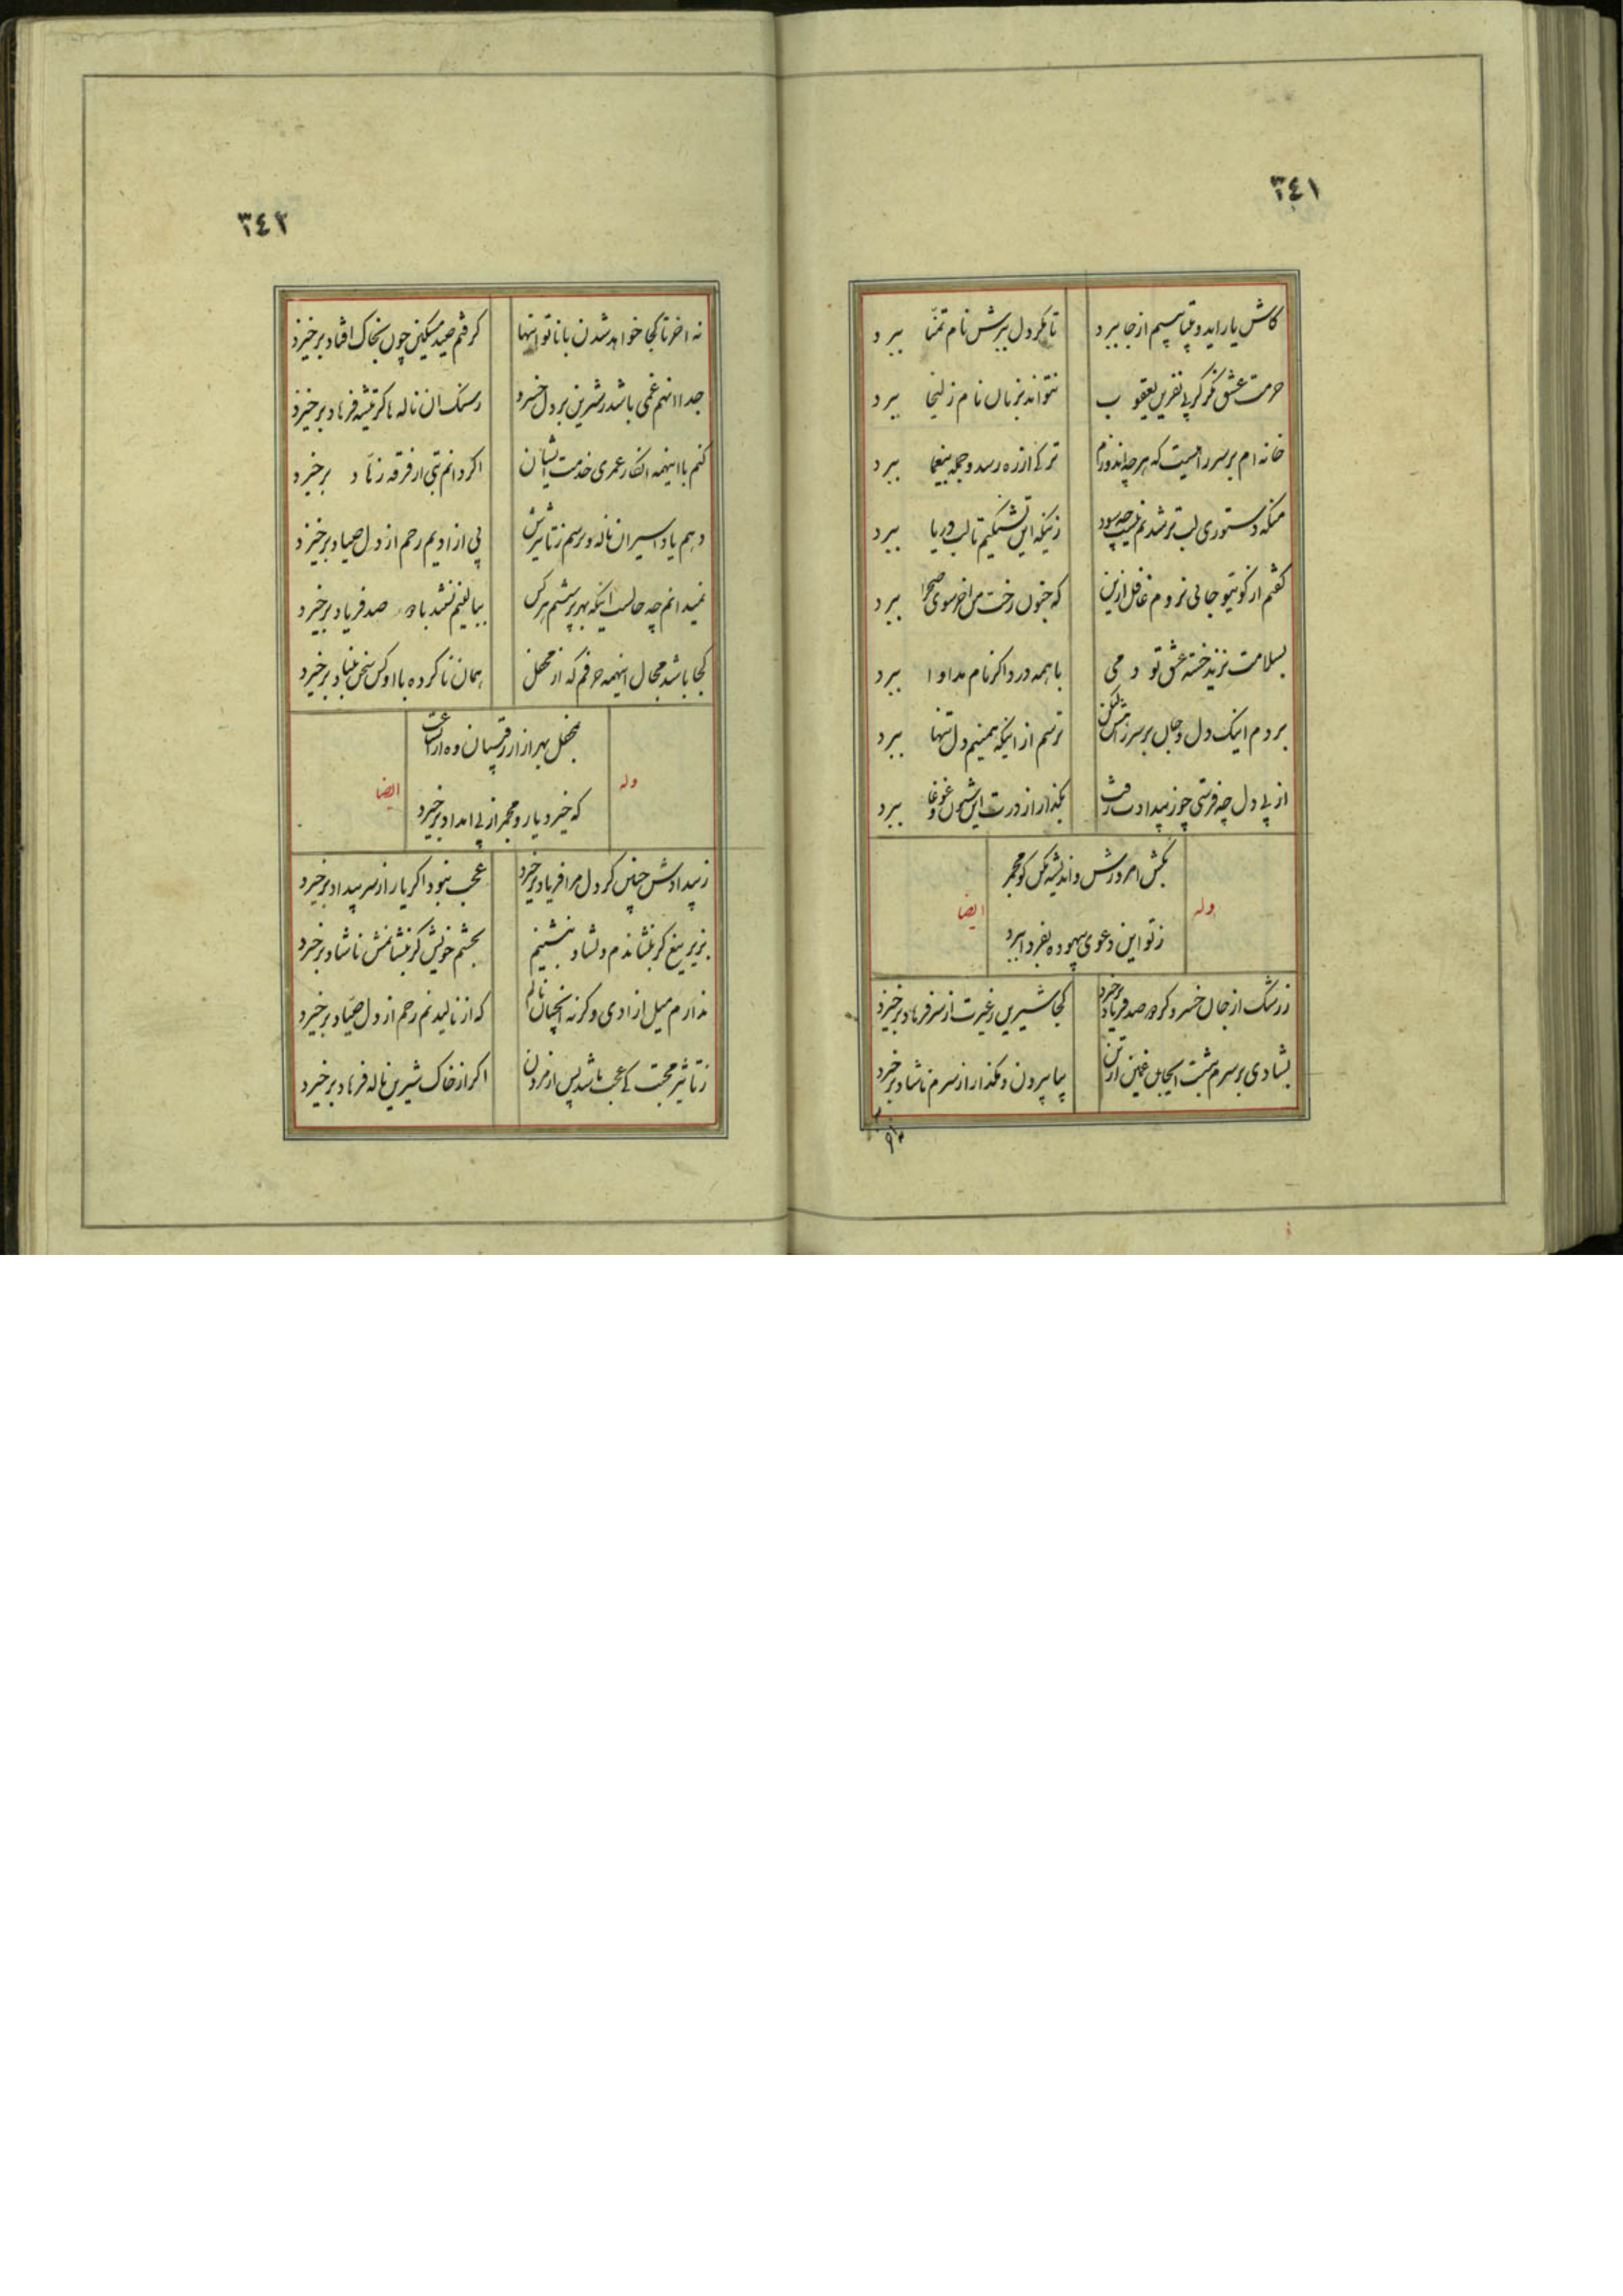 ٣٤١
کاش یار اید و بیتابیم از جا ببرد
تا مکر دل ببرش نام تمنا ببرد
حرمت عشق نکر کز پی نفرین یعقوب
نتواند بزبان نام زلیخا ببرد
خانه ام بر سر راهیست که هر چه اندوزم
ترکی از ره رسد و جمله بیغما ببرد
منکه دستوری لب تر شدنم نیست چه سود
زینکه این تشنکیم تا لب دریا ببرد
کفتم از کوی تو جائی نروم غافل ازین
که جنون رخت من اخر سوی صحرا ببرد
بسلامت نزید خسته عشق تو دمی
با همه درد اکر نام مداوا ببرد
بردم اینک دل و جان بر سر راهش لیکن
ترسم از اینکه همینم دل تنها ببرد
از پی دل چه فرستی چو ز بیدادت رفت
بکذار از درت این شیون و غوغا ببرد
وله
بکش امروزش و اندیشه مکن کو مجمر
ز تو این دعوی بیهوده بفردا ببرد
ایضا
ز رشک از جان خسرو کر دو صد فریاد برخیزد
کجا شیرین ز غیرت از سر فرهاد برخیزد
بشادی بر سرم بنشست اینجا غمین از تن
بیا بیرون و مکذار از سرم ناشاد برخیزد
نه اخر
٣٤٢
نه اخر تا کجا خواهد شدن با ناتوانیها
کرفتم صید مسکین چون بخاک افتاد برخیزد
جدا از هم غمی باشد ز شیرین بر دل خسرو
ز سنک ان ناله کز تیشه فرهاد برخیزد
کنم با اینهمه انکار عمری خدمت ایشان
اکر دانم تنی از فرقه زهاد برخیزد
دهم یاد اسیران ناله و ترسم ز تاثیرش
پی ازادیم رحم از دل صیاد برخیزد
نمیدانم چه حالست اینکه بهر پرسشم هر کس
ببالینم نشیند با صد فریاد برخیزد
کجا باشد مجال اینهمه حرفم که از محفل
همان ناکرده با او کس سخن بنیاد برخیزد
وله
بمحفل بهر ازار رقیبان وه از ان ساعت
که خیزد یار و مجمر از پی امداد برخیزد
ایضا
ز بیدادش چنین کز دل مرا فریاد برخیزد
عجب نبود اکر یار از سر بیداد برخیزد
بزیر تیغ کر بنشاندم دلشاد بنشینم
بچشم خویش کر بنشانمش ناشاد برخیزد
ندارم میل ازادی وکرنه انچنان نالم
که از نالیدنم رحم از دل صیاد برخیزد
ز تاثیر محبت کی عجب باشد پس از مردن
اکر از خاک شیرین ناله فرهاد برخیزد